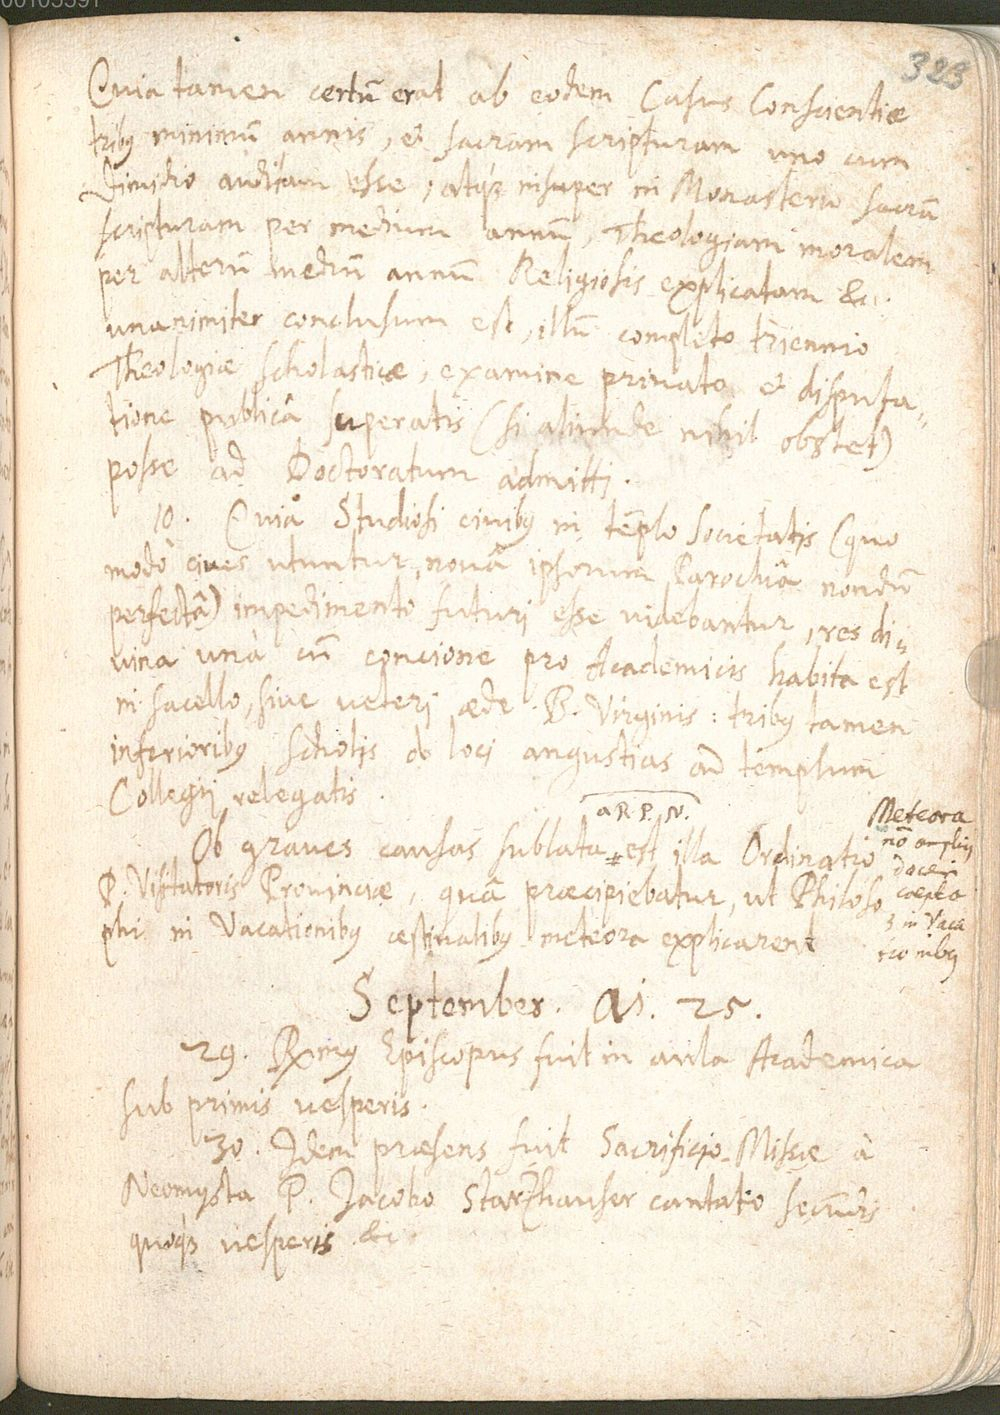 00103391
323
Quia tamen certū erat ab eodem Casus Conscientiæ
tribꝰ minimū annis, et sacram scripturam uno cum
Dimidio auditam esse, atqȝ insuper in Monasterio sacrā
scripturam per medium annū, Theologiam moralem
per alterū mediū annū Religiosis explicatam &c.
unanimiter conclusum est, illū completo triennio
Theologiæ scholasticæ, examine priuato et disputa„
tione publicâ superatis (si aliunde nihil obstet)
posse ad Doctoratum admitti.
10. Quia Studiosi ciuibꝰ in tēplo Societatis (quo
modò ciues utuntur, nouâ ipsorum Parochiâ nondū
perfectâ) impedimento futuri esse uidebantur, res di„
uina unà cū concione pro Academicis habita est
in sacello, siue ueteri æde B. Virginis: tribꝰ tamen
inferioribꝰ scholis ob loci angustias ad templum
Collegij relegatis.
a R. P. N.
Ob graues causas sublata # est illa Ordinatio
P. Visitatoris Prouinciæ, quâ præcipiebatur, ut Philoso
phi in Vacationibꝰ æstiualibꝰ meteora explicarent
Meteora
nō ampliꝰ
doceri
cæpta
in Vaca
tionibꝰ
September. Aō. 25.
29. Rmꝰ Episcopus fuit in aula Academica
sub primis uesperis.
30. Idem præsens fuit Sacrificio Missæ à
Neomysta P. Jacobo Starzhauser cantato secūdis
quoqȝ uesperis &c.